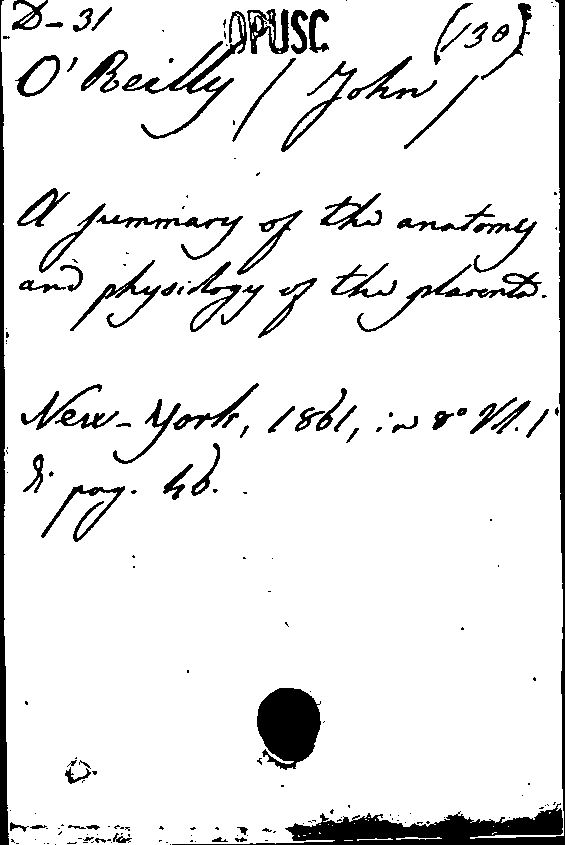 D-31 OPUSC (130)
O'Reilly (John)
A summary of the anatomy
and physiology of the placenta.
New-York, 1861, in 8° Vol. 1
de pag. 46.